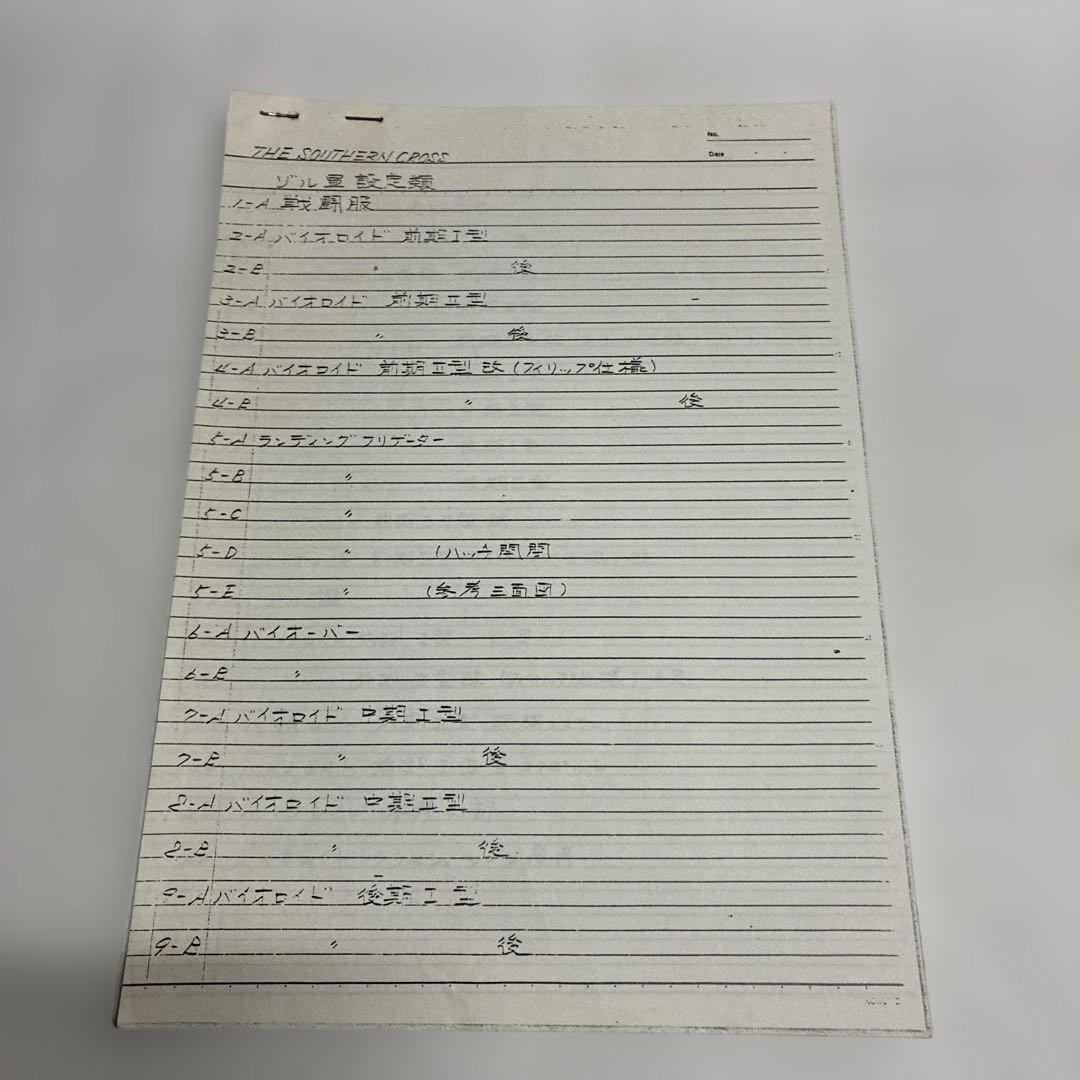 No.
Date
THE SOUTHERN CROSS
ゾル星設定類
1-A 戦闘服
2-A バイオロイド 前期I型
2-B 〃 後
3-A バイオロイド 前期II型
3-B 〃 後
4-A バイオロイド 前期II型 改(フィリップ仕様)
4-B 〃 後
5-A ランディングフリゲーター
5-B 〃
5-C 〃
5-D 〃 (ハッチ開閉
5-E 〃 (参考三面図)
6-A バイオーバー
6-B 〃
7-A バイオロイド 中期I型
7-B 〃 後
8-A バイオロイド 中期II型
8-B 〃 後
9-A バイオロイド 後期I型
9-B 〃 後